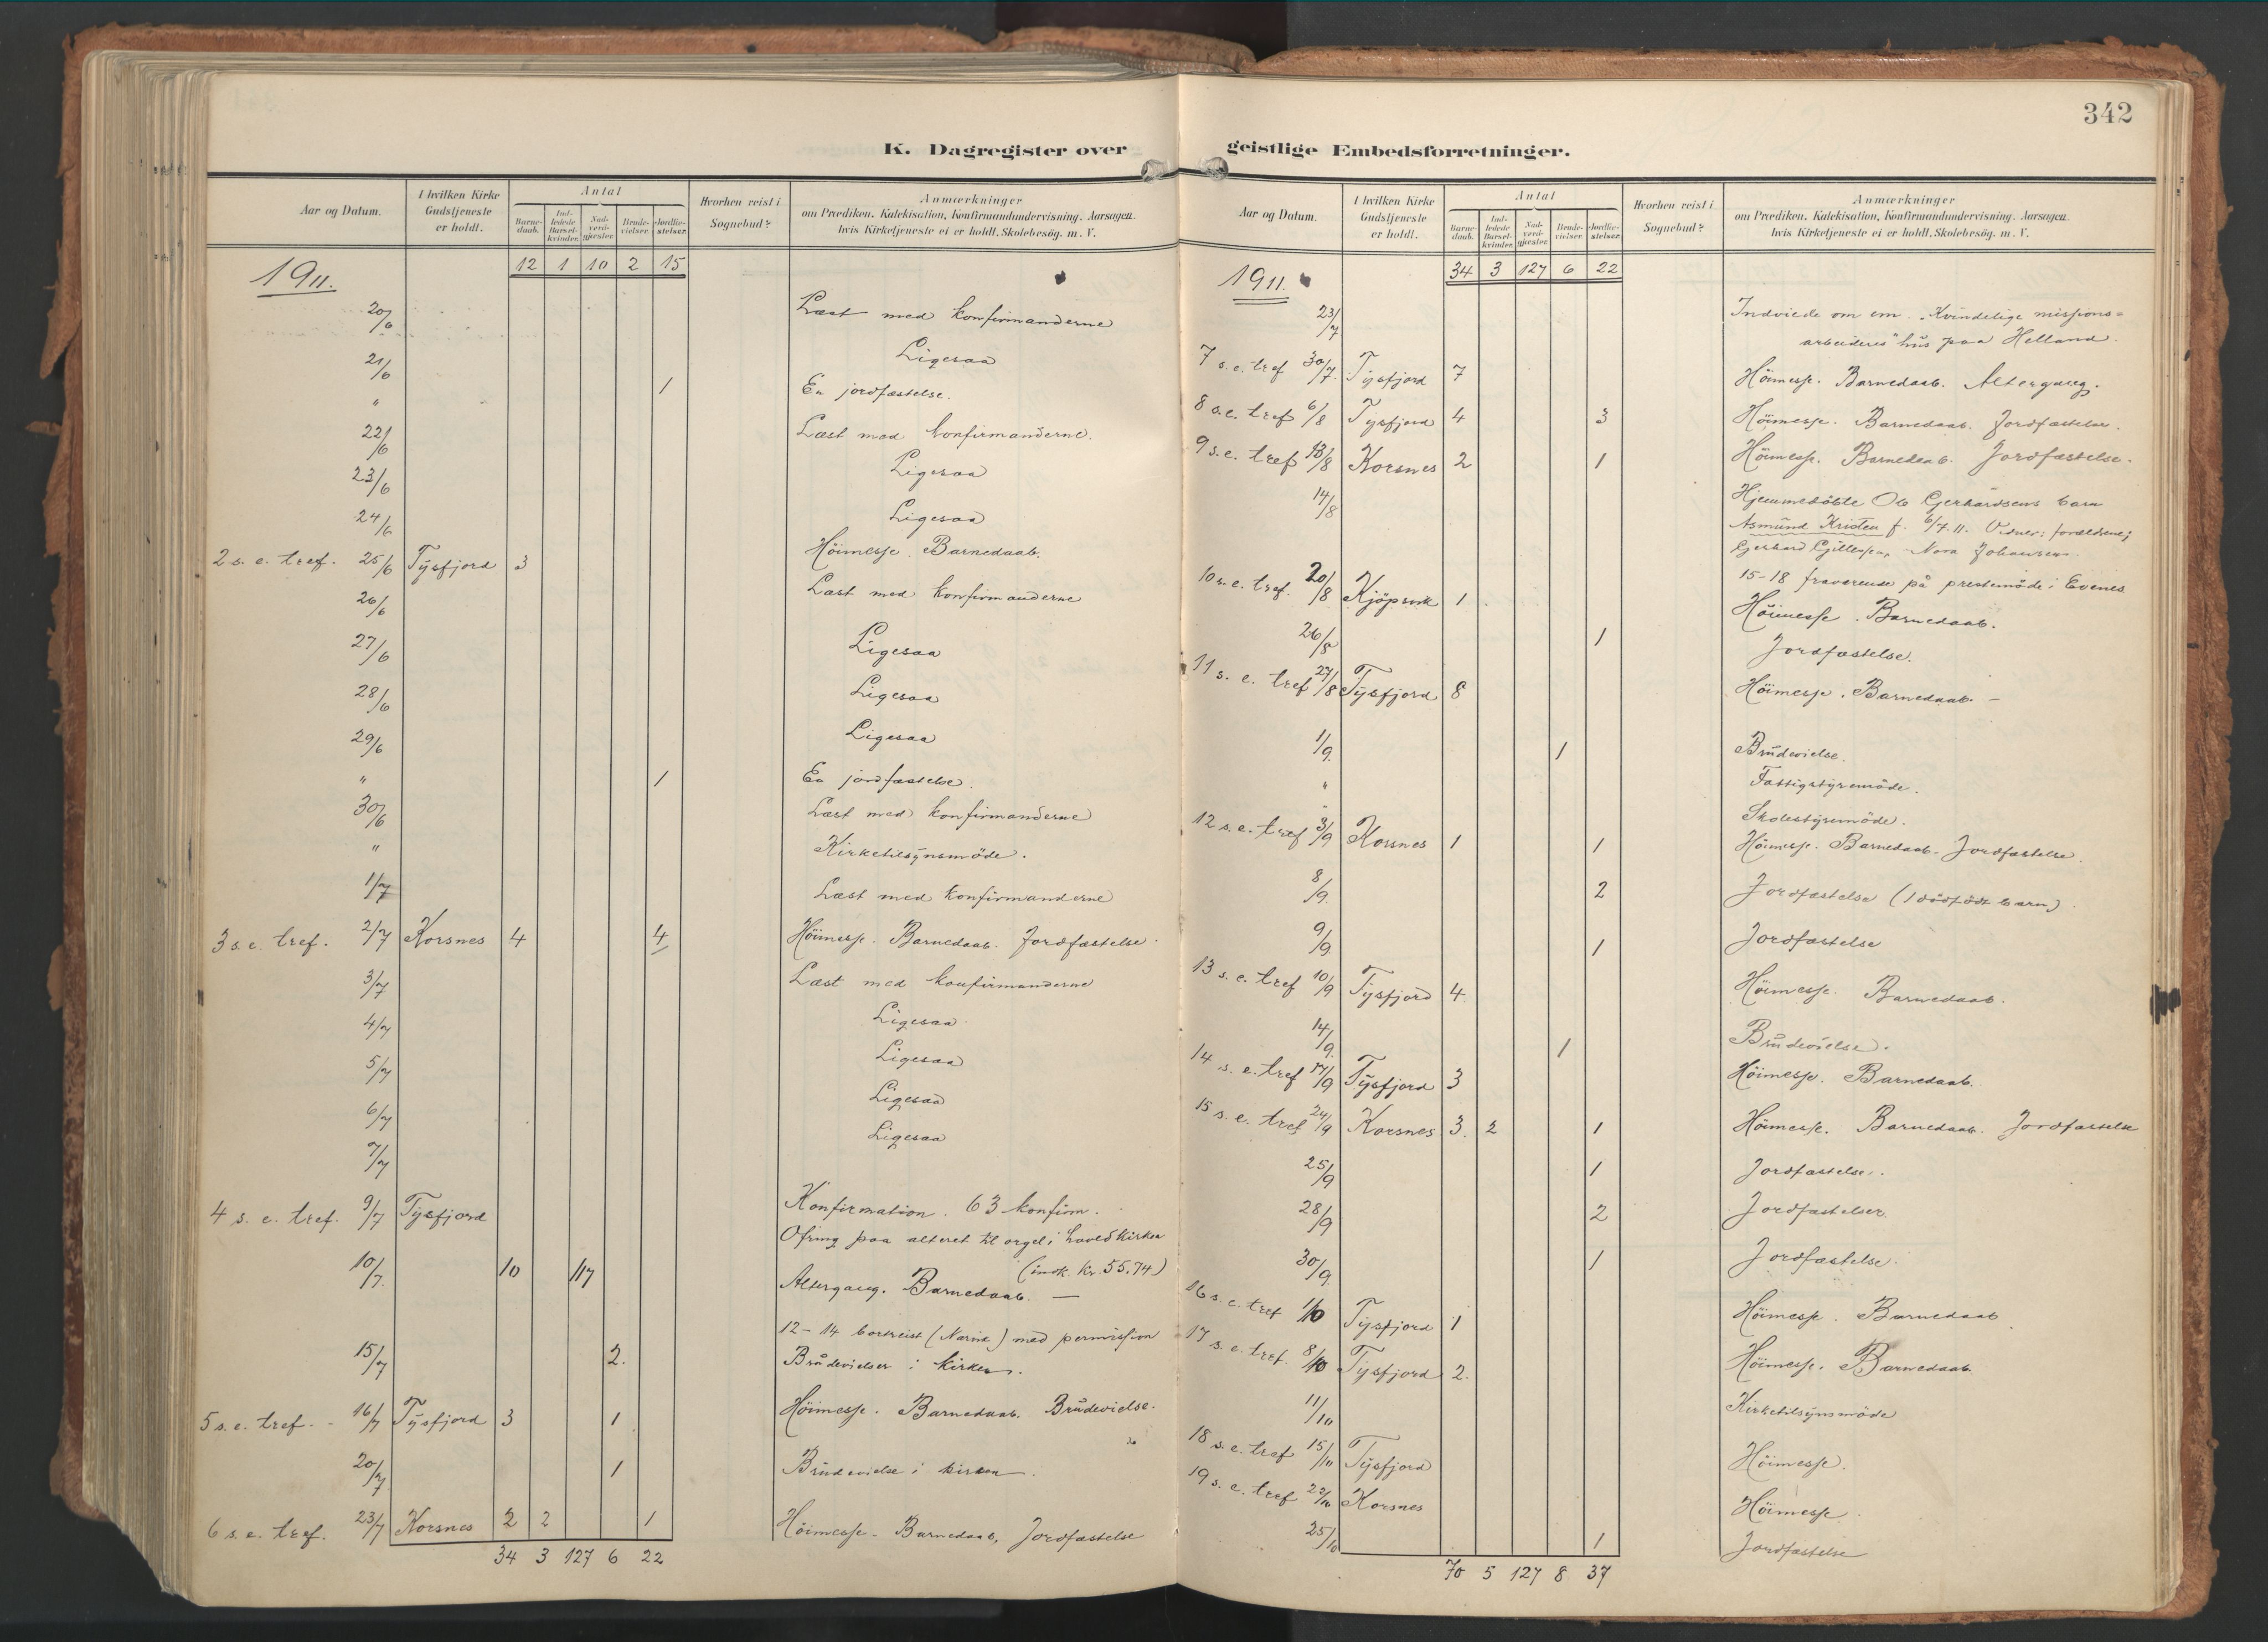 342
K. Dagregister over
Aar og Datum. I hvilken Kirke Gudstjeneste er holdt. Antal Barne-daab. Ind-ledede Barsel-kvinder. Nad-verd-gjæster. Brude-vielser. Jordfæ-stelser. Hvorhen reist i Sognebud? Anmærkninger om Prædiken, Katekisation, Konfirmandundervisning, Aarsagen, hvis Kirketjeneste ei er holdt, Skolebesög. m. V.
1911. 12 1 10 2 15
20/6 Læst med konfirmanderne
21/6 Ligesaa
" 1 En jordfæstelse.
22/6 Læst med konfirmanderne.
23/6 Ligesaa
24/6 Ligesaa
2 s. e. tref. 25/6 Tysfjord 3 Höimesse. Barnedaab.
26/6 Læst med konfirmanderne
27/6 Ligesaa
28/6 Ligesaa
29/6 Ligesaa
" 1 En jordfæstelse.
30/6 Læst med konfirmanderne
" Kirketilsynsmöde.
1/7 Læst med konfirmanderne
3 s. e. tref. 2/7 Korsnes 4 4 Höimesse. Barnedaab. Jordfæstelse.
3/7 Læst med konfirmanderne
4/7 Ligesaa
5/7 Ligesaa
6/7 Ligesaa
7/7 Ligesaa
4 s. e. tref. 9/7 Tysfjord Konfirmation. 63 konfirm.
Ofring paa alteret til orgel i hovedkirken
(indk. kr. 55.74)
10/7. 10 117 Altergang. Barnedaab. —
12-14 bortreist (Narvik) med permission
15/7 2. Brudevielser i kirken.
5 s. e. tref. - 16/7 Tysfjord 3 1 Höimesse. Barnedaab. Brudevielse.
20/7 1 Brudevielse i kirken.
6 s. e. tref. 23/7 Korsnes 2 2 1 Höimesse. Barnedaab, Jordfæstelse
34 3 127 6 22
geistlige Embedsforretninger.
Aar og Datum. I hvilken Kirke Gudstjeneste er holdt. Antal Barne-daab. Ind-ledede Barsel-kvinder. Nad-verd-gjæster. Brude-vielser. Jordfæ-stelser. Hvorhen reist i Sognebud? Anmærkninger om Prædiken, Katekisation, Konfirmandundervisning, Aarsagen, hvis Kirketjeneste ei er holdt, Skolebesög. m. V.
1911. 34 3 127 6 22
23/7 Indviede om em. "Kvindelige missions=
arbeideres" hus paa Helland.
7 s. e. tref 30/7. Tysfjord 7 Höimesse. Barnedaab. Altergang.
8 s. e. tref 6/8 Tysfjord 4 3 Höimesse. Barnedaab. Jordfæstelse.
9 s. e. tref 13/8 Korsnes 2 1 Höimesse. Barnedaab. Jordfæstelse.
14/8 Hjemmedöbte Ole Gerhardsens barn
Asmund Kristen f. 6/7.11. forældrene;
Gerhard Nora Johansen.
15-18 fraværende på prestemöde i Evenes
10 s. e. tref. 20/8 Kjöpsvik 1 Höimesse. Barnedaab.
26/8 1 Jordfæstelse.
11 s. e. tref 27/8 Tysfjord 8 Höimesse. Barnedaab. —
1/9. 1 Brudevielse.
" Fattigstyremöde.
" Skolestyremöde.
12 s. e. tref 3/9 Korsnes 1 1 Höimesse. Barnedaab. Jordfæstelse.
8/9. 2 Jordfæstelse (1 dödfödt barn).
9/9. 1 Jordfæstelse
13 s. e. tref 10/9 Tysfjord 4. Höimesse. Barnedaab.
14/9. 1 Brudevielse.
14 s. e. tref 17/9 Tysfjord 3 Höimesse. Barnedaab.
15 s. e. tref 24/9 Korsnes 3. 2 1 Höimesse. Barnedaab. Jordfæstelse
25/9 1 Jordfæstelse.
28/9 2 Jordfæstelser.
30/9. 1 Jordfæstelse.
16 s. e. tref 1/10 Tysfjord 1 Höimesse. Barnedaab
17 s. e. tref. 8/10 Tysfjord 2. Höimesse. Barnedaab.
11/10 Kirketilsynsmöde
18 s. e. tref 15/10 Tysfjord Höimesse.
19 s. e. tref 22/10 Korsnes Höimesse.
25/10 1 Jordfæstelse
70 5 127 8 37